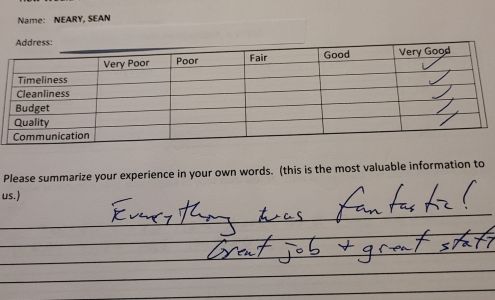 Name: NEARY, SEAN
Address:
Very Poor Poor Fair Good Very Good
Timeliness
Cleanliness
Budget
Quality
Communication
Please summarize your experience in your own words. (this is the most valuable information to
us.)
Everything was fantastic!
Great job + great staff